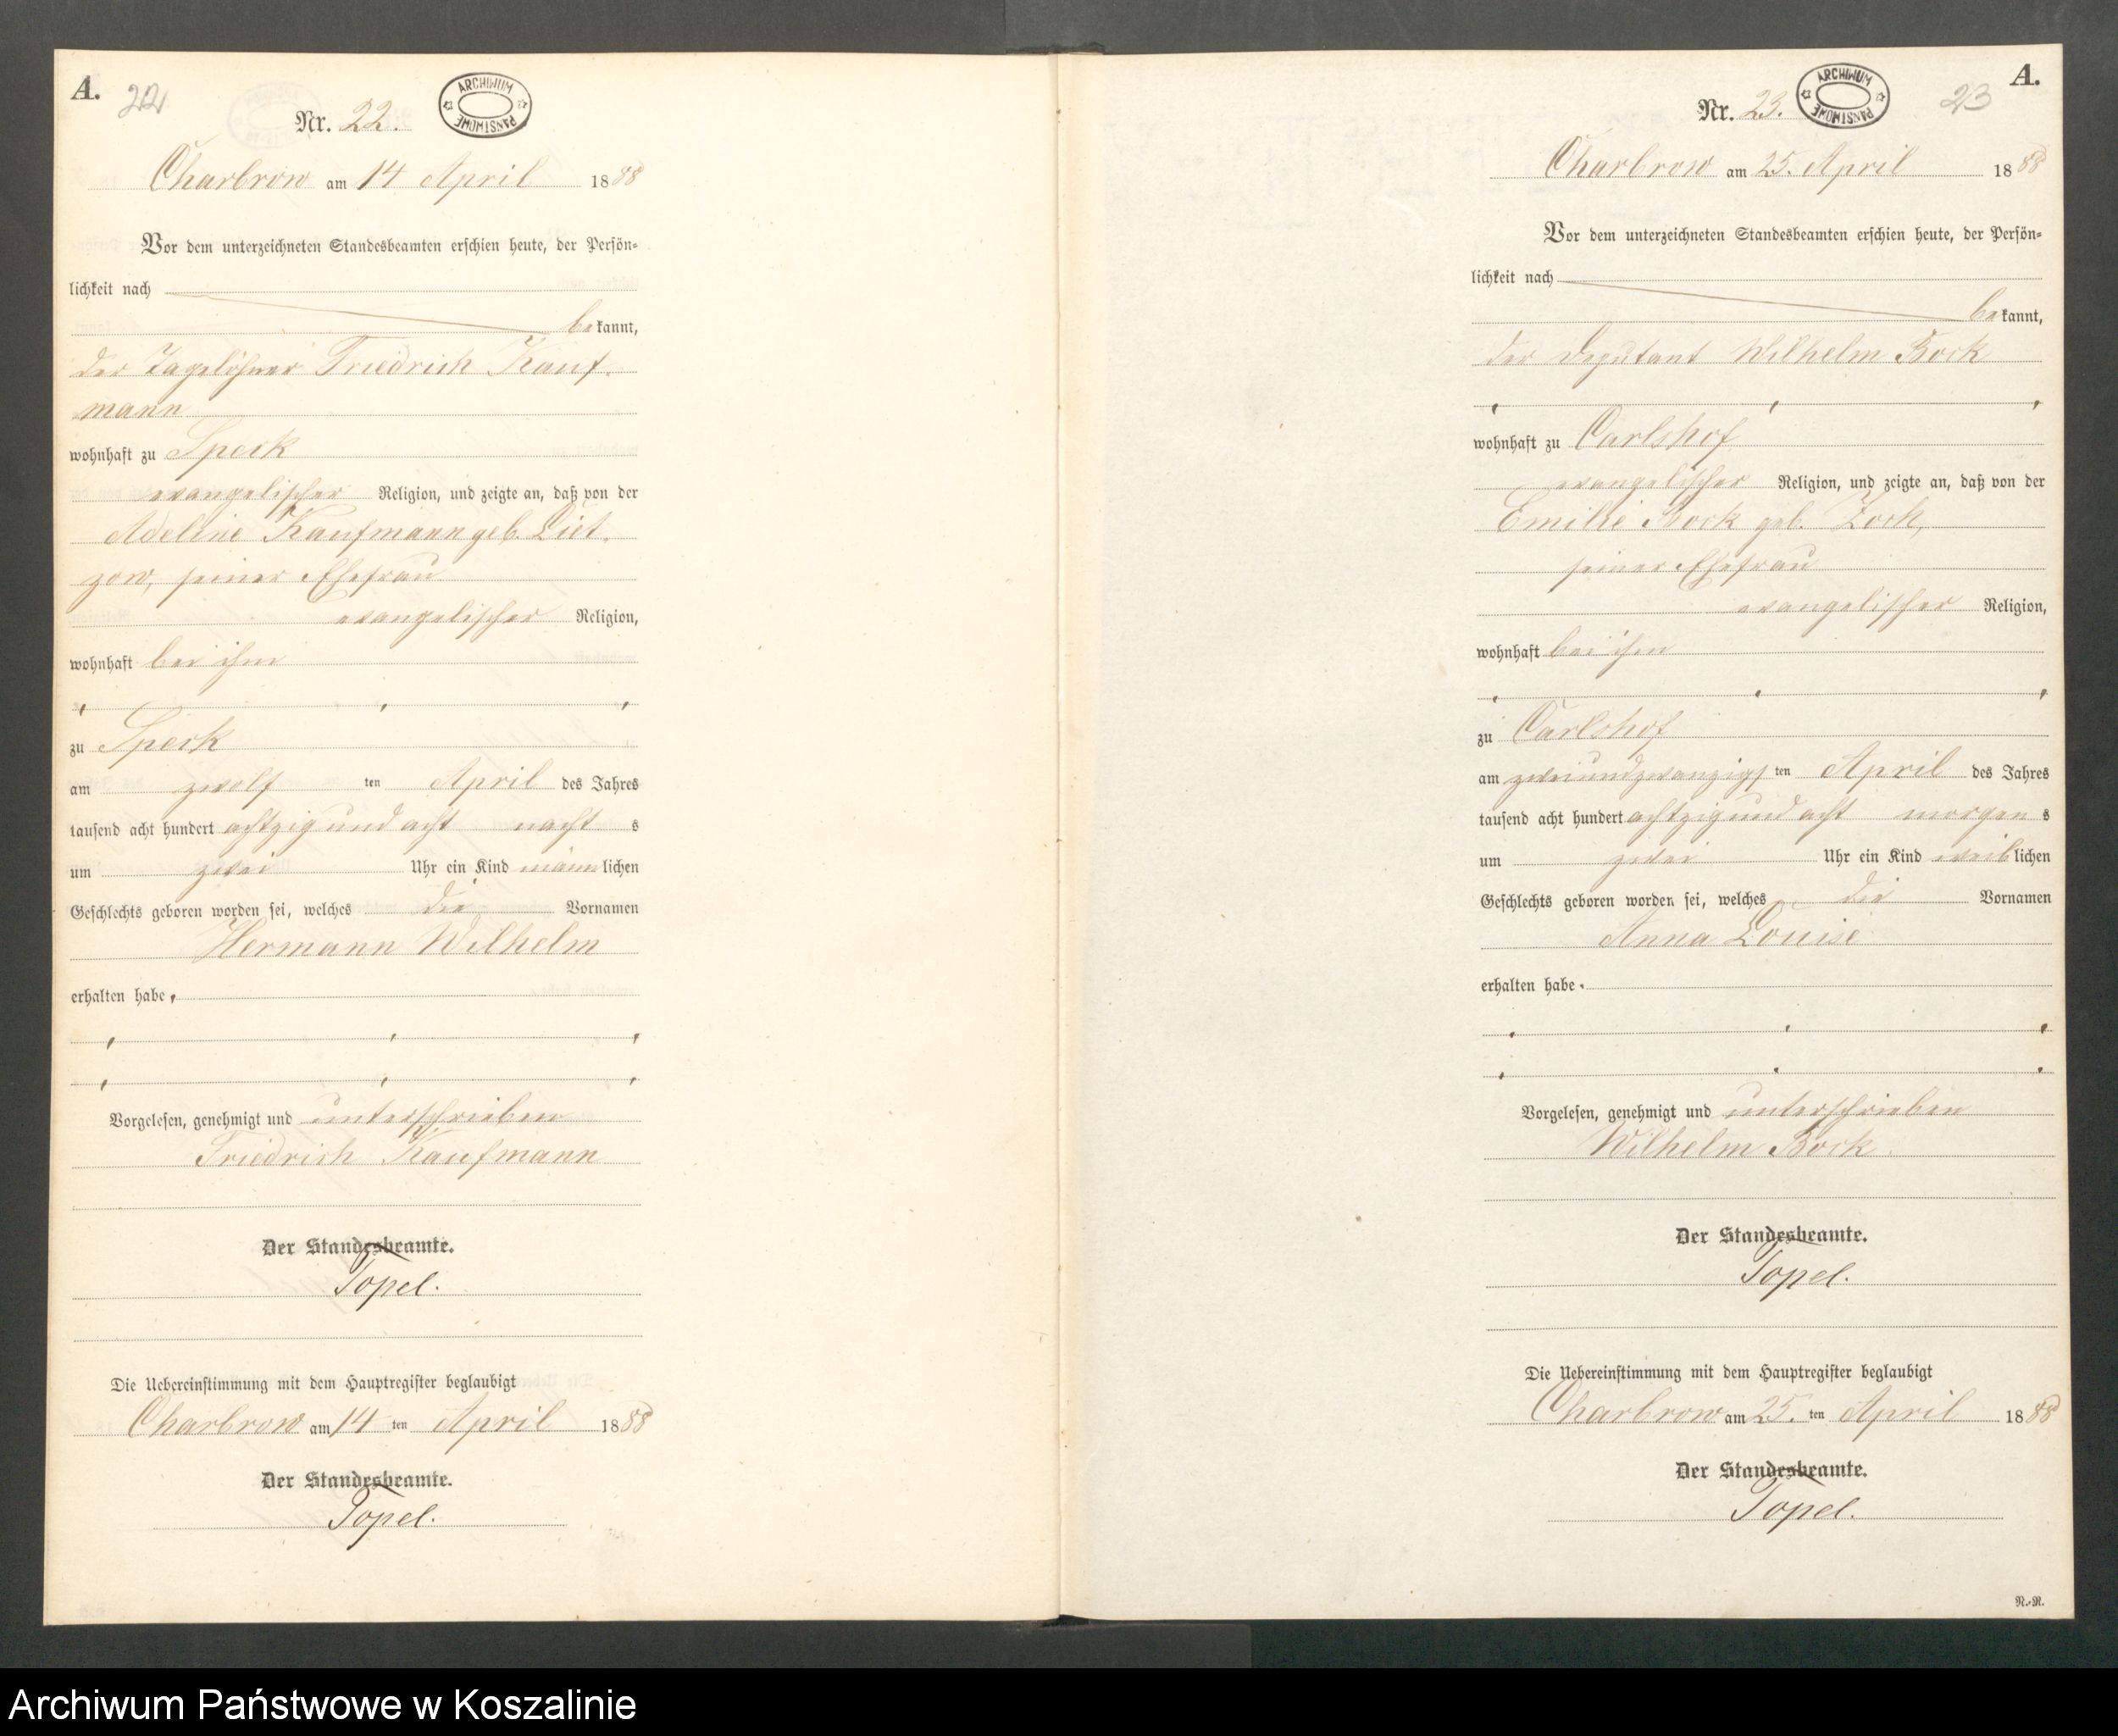 A.
22
Nr. 22.
ARCHIWUM PAŃSTWOWE
Charbrow am 14 April 1888
Vor dem unterzeichneten Standesbeamten erschien heute, der Persön-
lichkeit nach
bekannt,
der Tagelöhner Friedrich Kauf-
mann
wohnhaft zu Speck
evangelischer Religion, und zeigte an, daß von der
Adeline Kaufmann geb. Liet-
zow, seiner Ehefrau
evangelischer Religion,
wohnhaft bei ihm
zu Speck
am zwölf ten April des Jahres
tausend acht hundert achtzig und acht nacht s
um zwei Uhr ein Kind männlichen
Geschlechts geboren worden sei, welches die Vornamen
Hermann Wilhelm
erhalten habe.
Vorgelesen, genehmigt und unterschrieben
Friedrich Kaufmann
Der Standesbeamte.
Topel.
Die Uebereinstimmung mit dem Hauptregister beglaubigt
Charbrow am 14 ten April 1888
Der Standesbeamte.
Topel.
A.
23
Nr. 23.
ARCHIWUM PAŃSTWOWE
Charbrow am 25. April 1888
Vor dem unterzeichneten Standesbeamten erschien heute, der Persön-
lichkeit nach
bekannt,
der Deputant Wilhelm Bock
wohnhaft zu Carlshof
evangelischer Religion, und zeigte an, daß von der
Emilie Bock geb. Zoch,
seiner Ehefrau
evangelischer Religion,
wohnhaft bei ihm
zu Carlshof
am zweiundzwanzigs ten April des Jahres
tausend acht hundert achtzig und acht morgen s
um zwei Uhr ein Kind weiblichen
Geschlechts geboren worden sei, welches die Vornamen
Anna Louise
erhalten habe.
Vorgelesen, genehmigt und unterschrieben
Wilhelm Bock
Der Standesbeamte.
Topel.
Die Uebereinstimmung mit dem Hauptregister beglaubigt
Charbrow am 25. ten April 1888
Der Standesbeamte.
Topel.
N.-N.
Archiwum Państwowe w Koszalinie